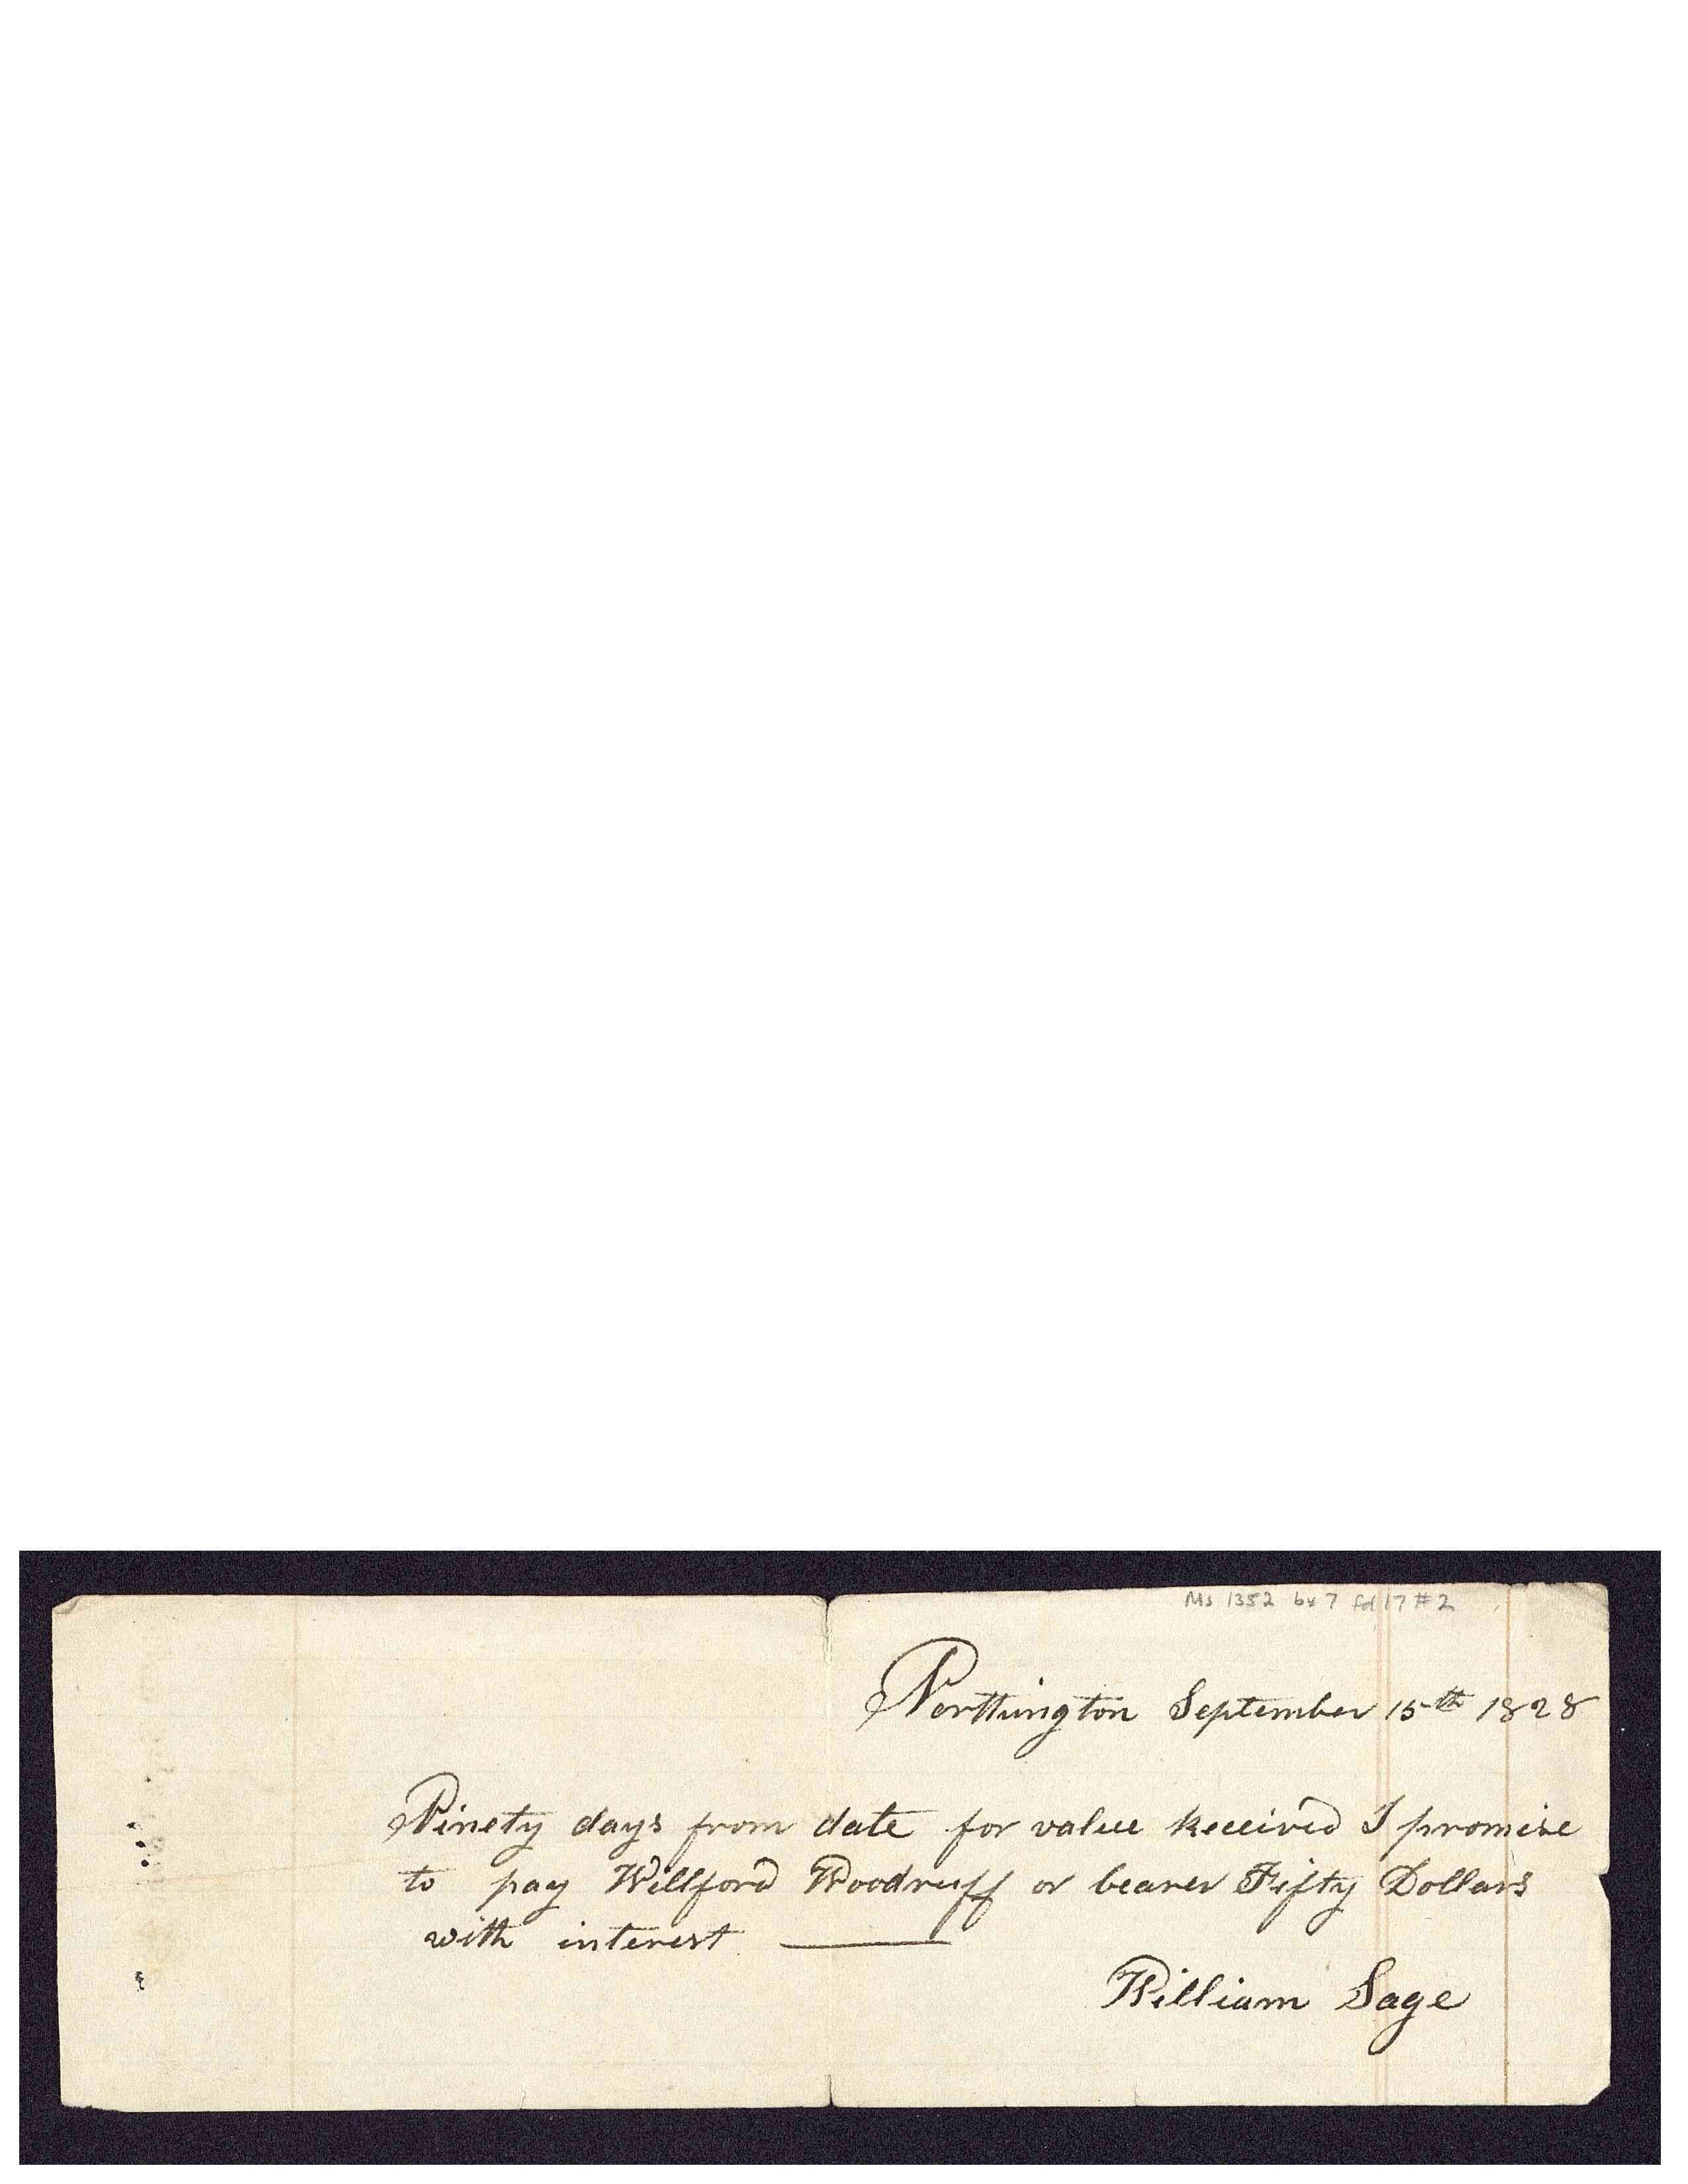 Ms 1352 bx 7 fd 17 #2
Northington September 15th 1828
Ninety days from date for value Received I promise
to pay Willford Woodruff or bearer Fifty Dollars
with interest ———
William Sage